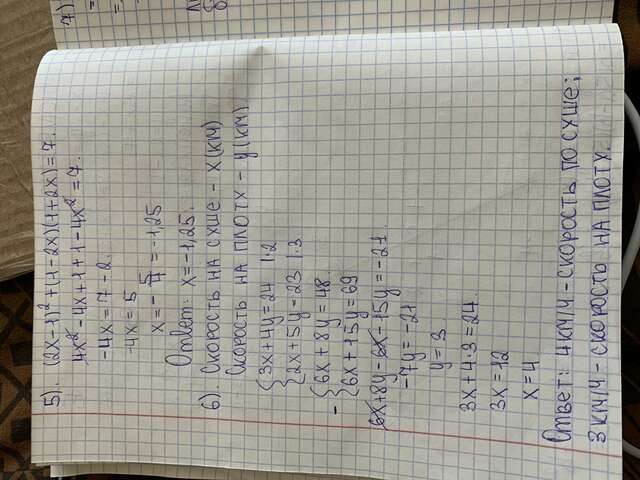 5). (2x-1)²+(1-2x)(1+2x)=7.
4x²-4x+1+1-4x²=7.
-4x=7-2.
-4x=5
x=-5/4=-1,25
Ответ: x=-1,25.
6). Скорость на суше - x(км/ч)
Скорость на плоту - y(км/ч)
{3x+4y=24 |·2
{2x+5y=23 |·3
-{6x+8y=48.
{6x+15y=69
6x+8y-6x-15y=-21
-7y=-21
y=3
3x+4·3=24.
3x=12
x=4
Ответ: 4км/ч-скорость по суше;
3км/ч-скорость на плоту.
7)